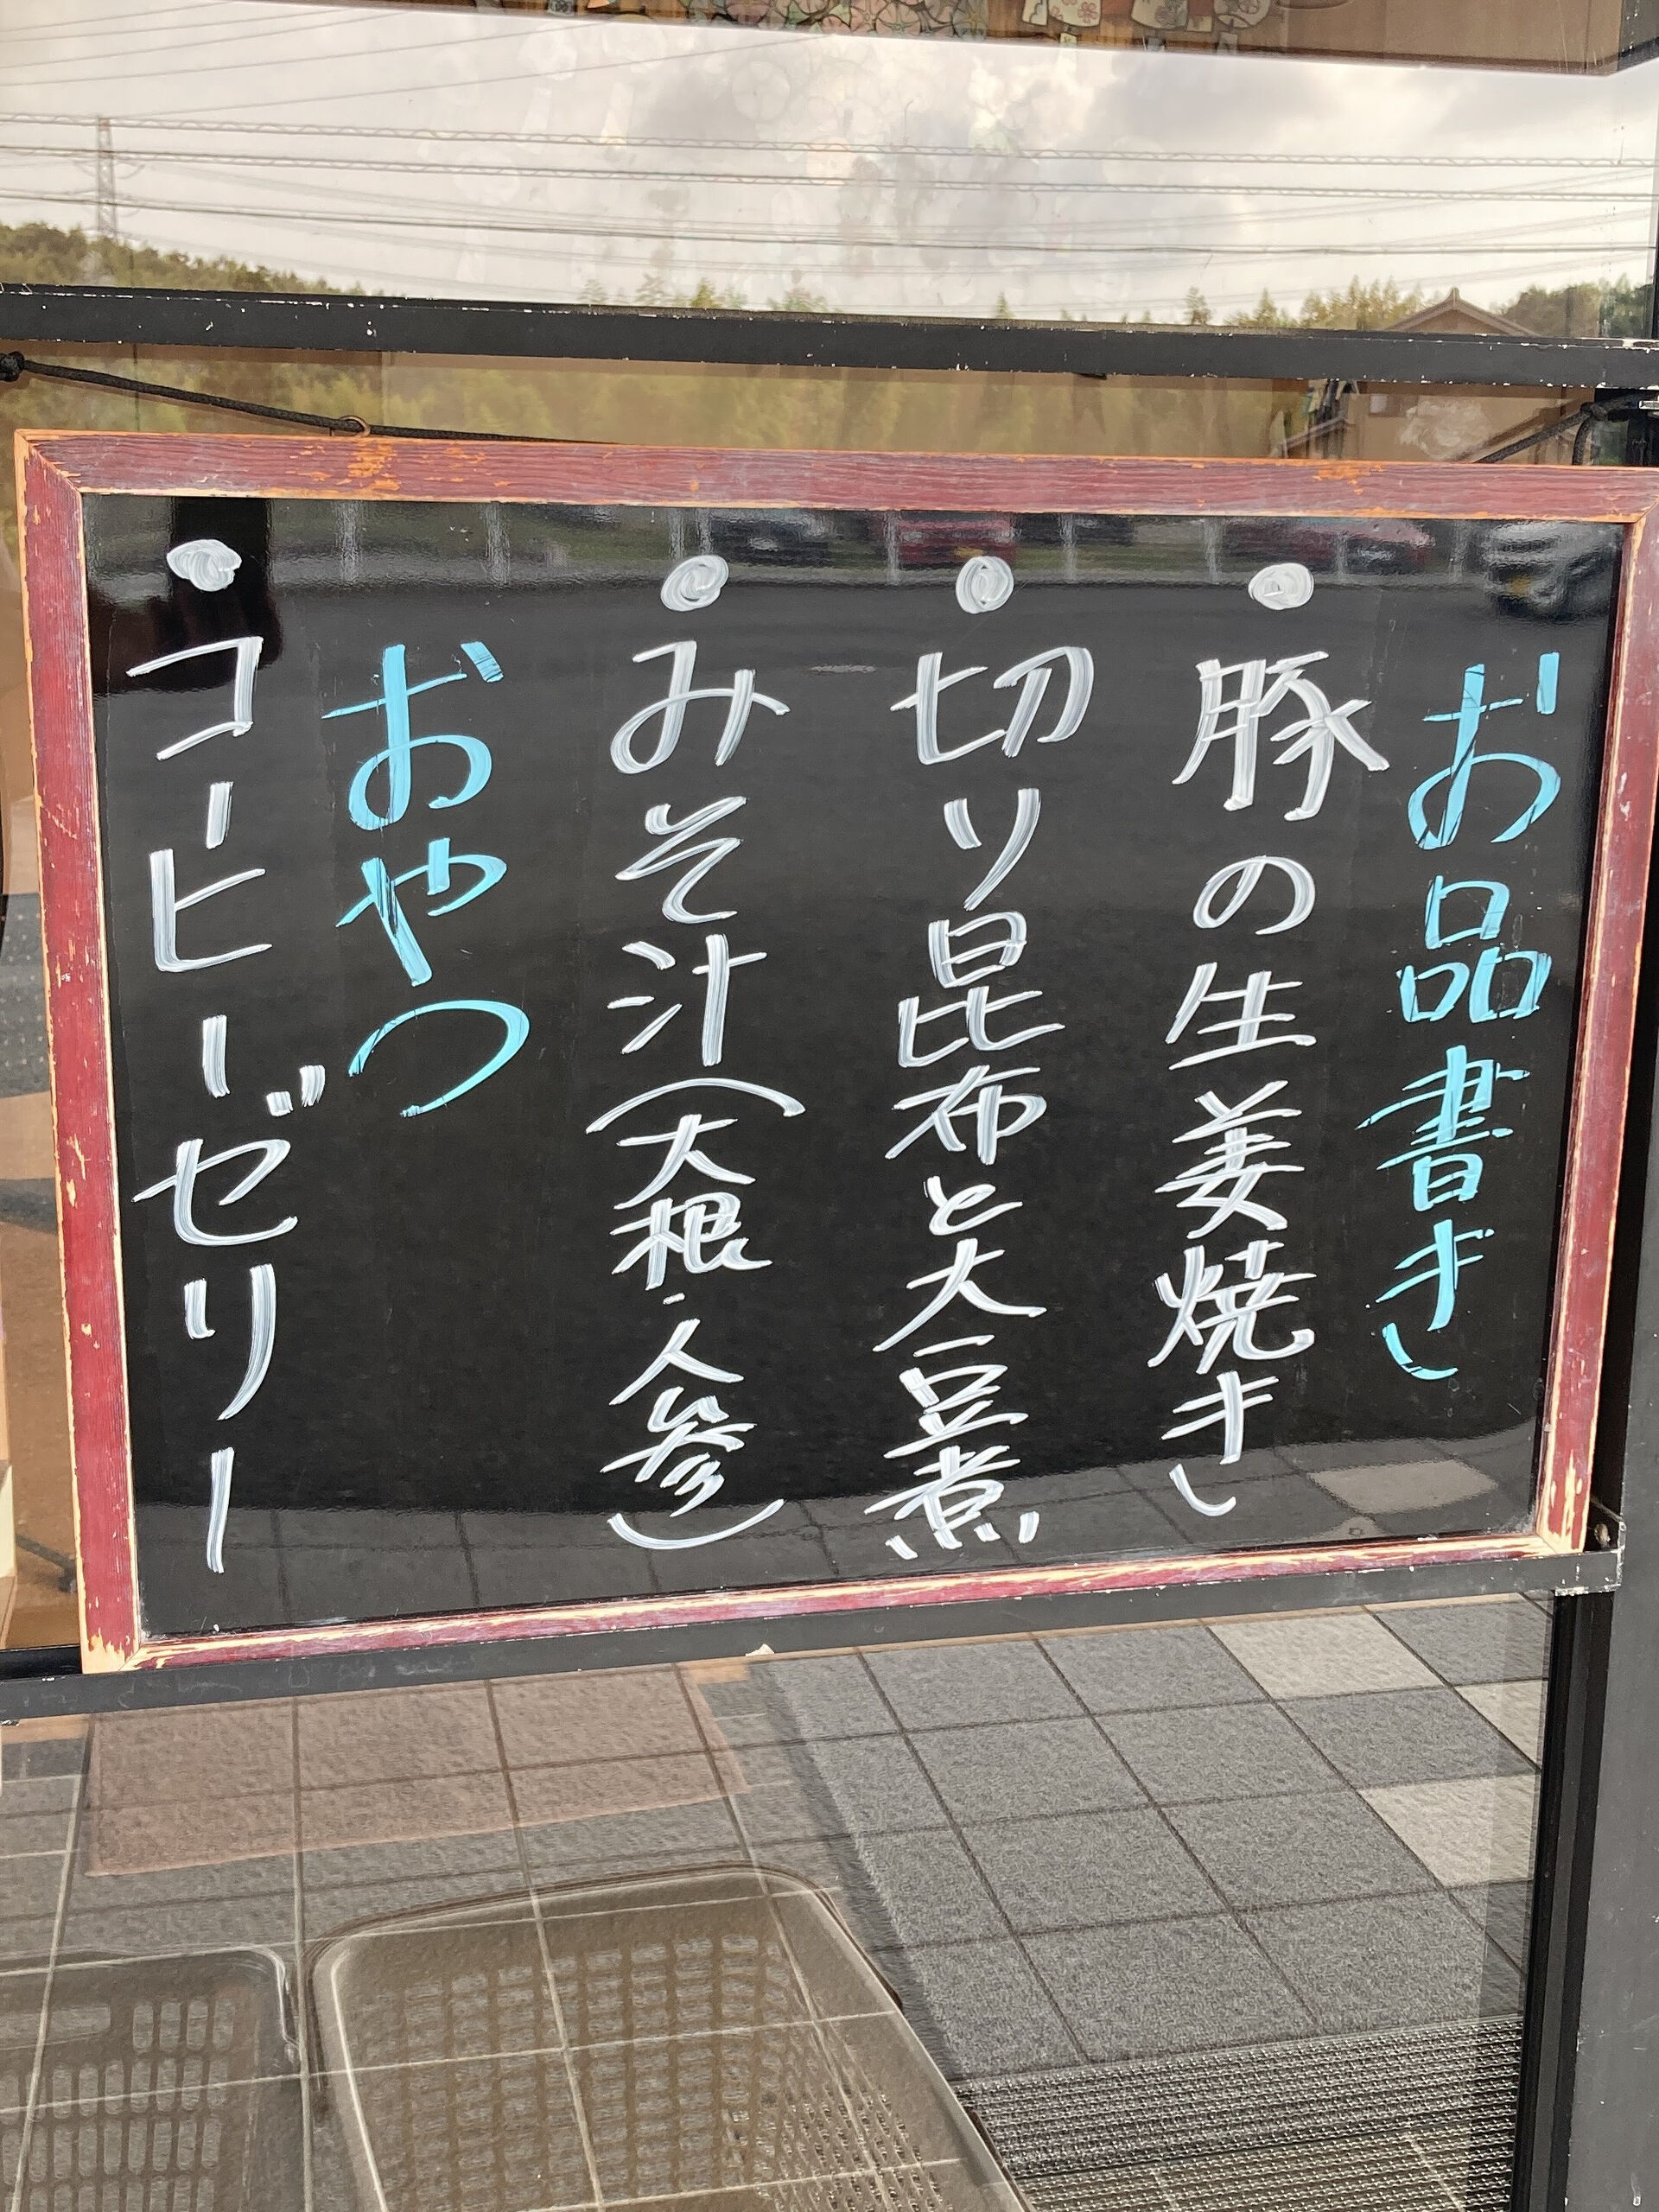 お品書き
・豚の生姜焼き
・切り昆布と大豆煮
・みそ汁(大根・人参)
おやつ
・コーヒーゼリー